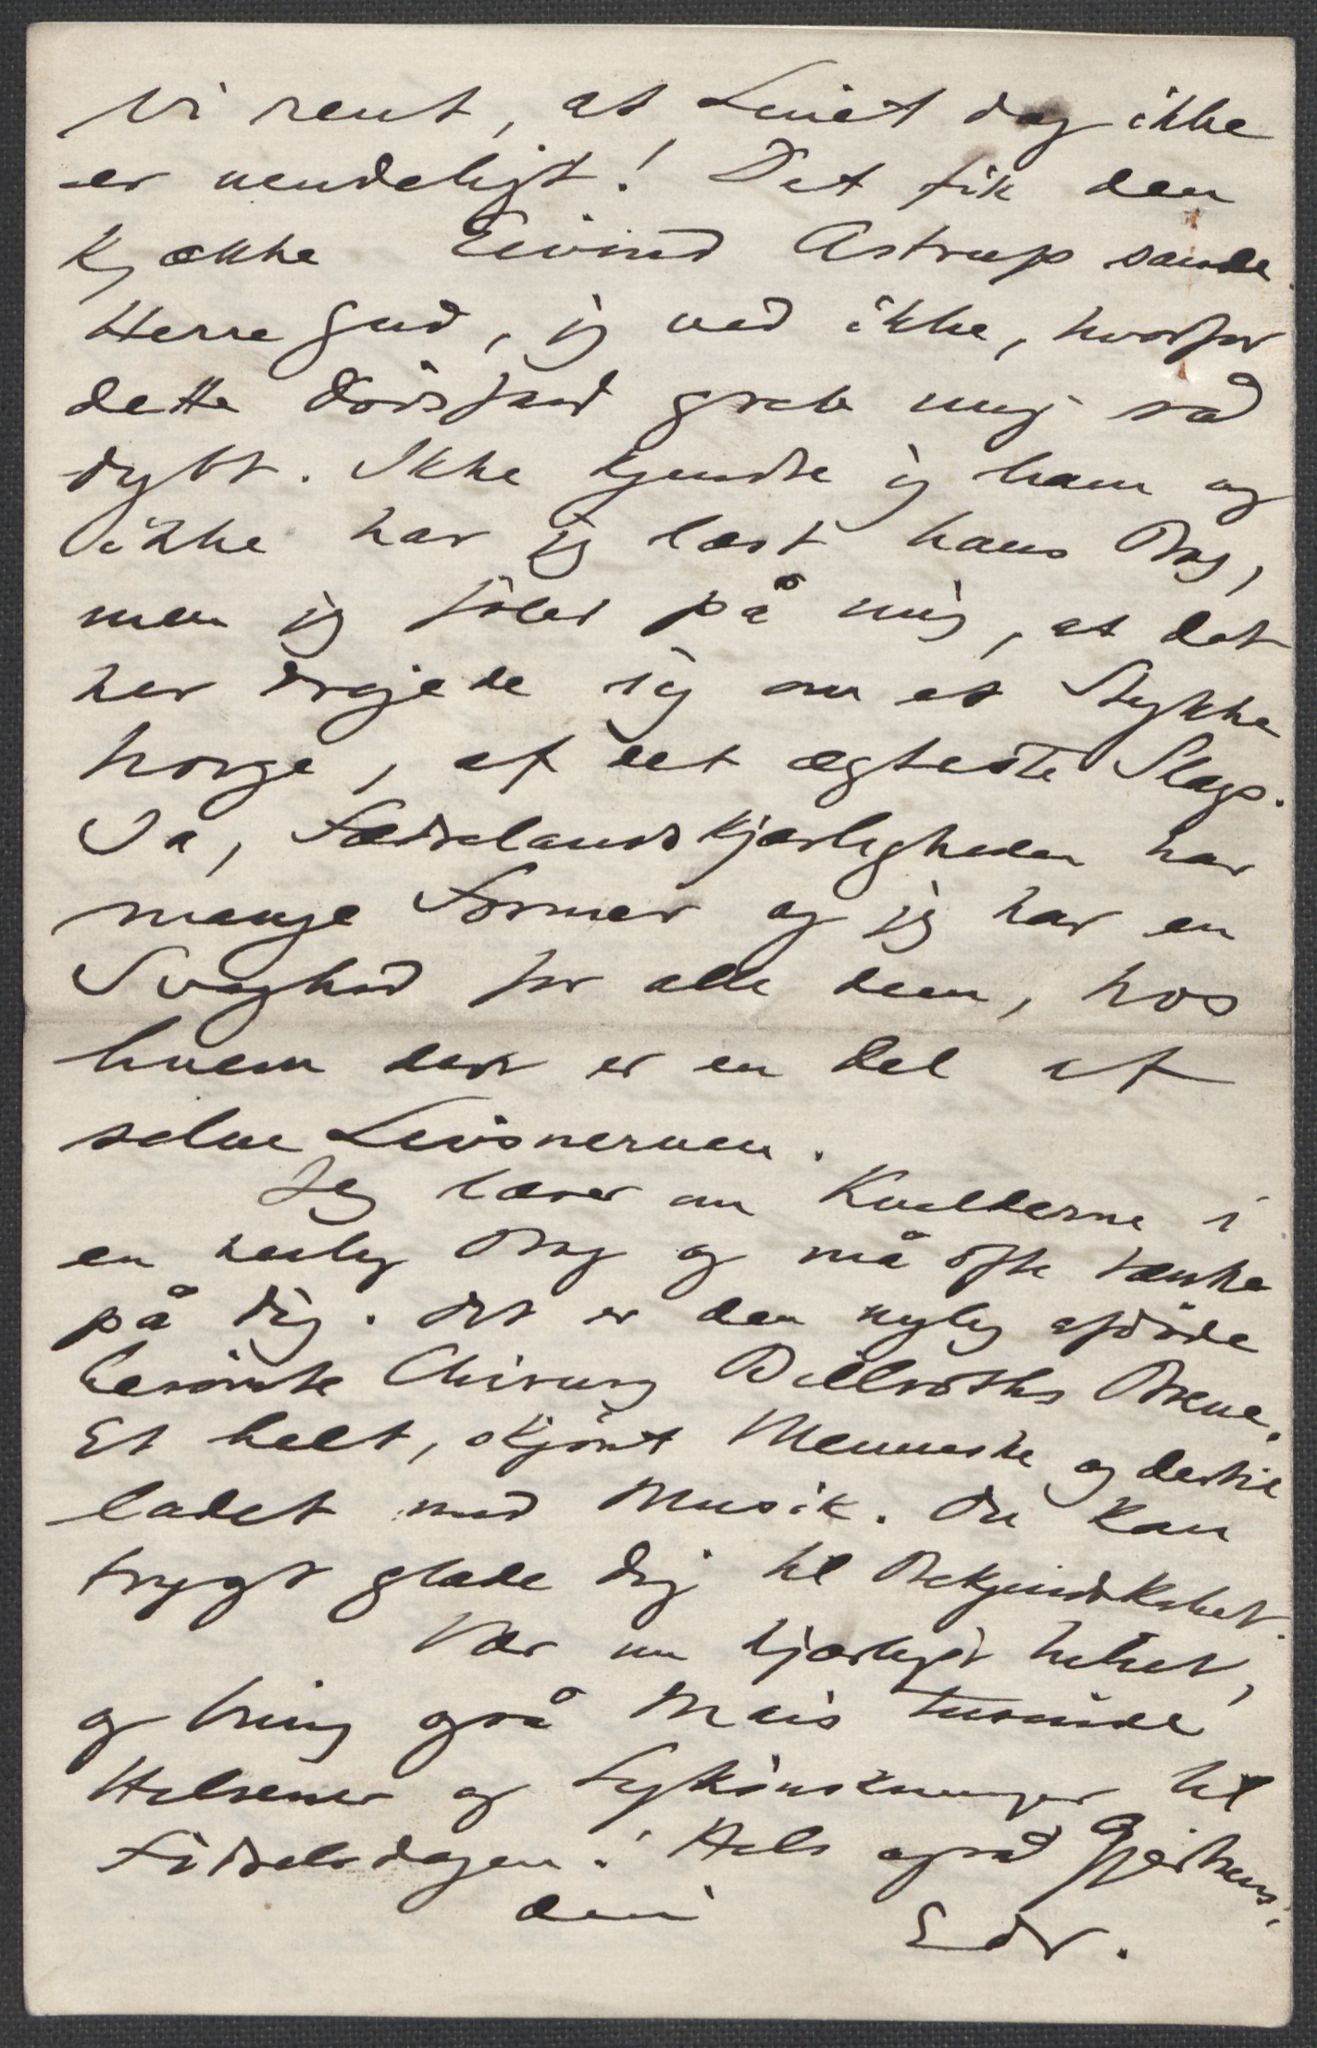 vi rent, at Livet dog ikke
er uendeligt! Det fik den
kjække Eivind Astrup sande.
Herre Gud, jeg ved ikke, hvorfor
dette Dødsfald greb mig så
dybt. Ikke kjendte jeg ham og
ikke har jeg læst hans Bog,
men jeg føler på mig, at det
her drejede sig om et Stykke
Norge, af det ægteste Slags.
Ja, Fædrelandskjærligheden har
mange Former og jeg har en
Svaghed for alle dem, hos
hvem den er en Del af
selve Livsnerven.
Jeg læser om Kvelderne i
en herlig Bog og må ofte tænke
på Dig. Det er den nylig afdøde
berømte Chirurg Billroths Breve.
Et helt, skjønt Menneske og dertil
ladet med Musik. Du kan
trygt glæde Dig til Bekjendtskabet.
Vær nu kjærligst hilset,
og bring også Mais tusinde
Hilsener og Lykønskninger til
Fødselsdagen! Hils også Gjertsens.
din Edv.